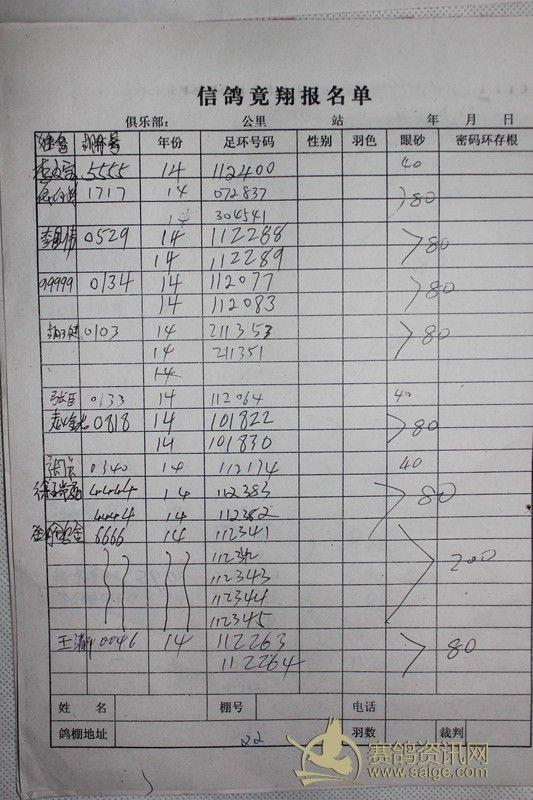 信鸽竟翔报名单
俱乐部: 公里 站 年 月 日
姓名 棚号 年份 足环号码 性别 羽色 眼砂 密码环存根
5555 14 112400 40
1717 14 072837 80
14 304541
0529 14 112288 80
14 112289
99999 0134 14 112077 80
14 112083
0103 14 211353 80
14 211351
14
0133 14 112064 40
0818 14 101822 80
14 101830
0340 14 112174 40
4444 14 112383 80
4444 14 112382
6666 14 112341 200
112342
112343
112344
112345
王 0046 14 112263 80
112264
姓 名 棚号 电话
鸽棚地址 22 羽数 裁判
赛鸽资讯网
www.saige.com